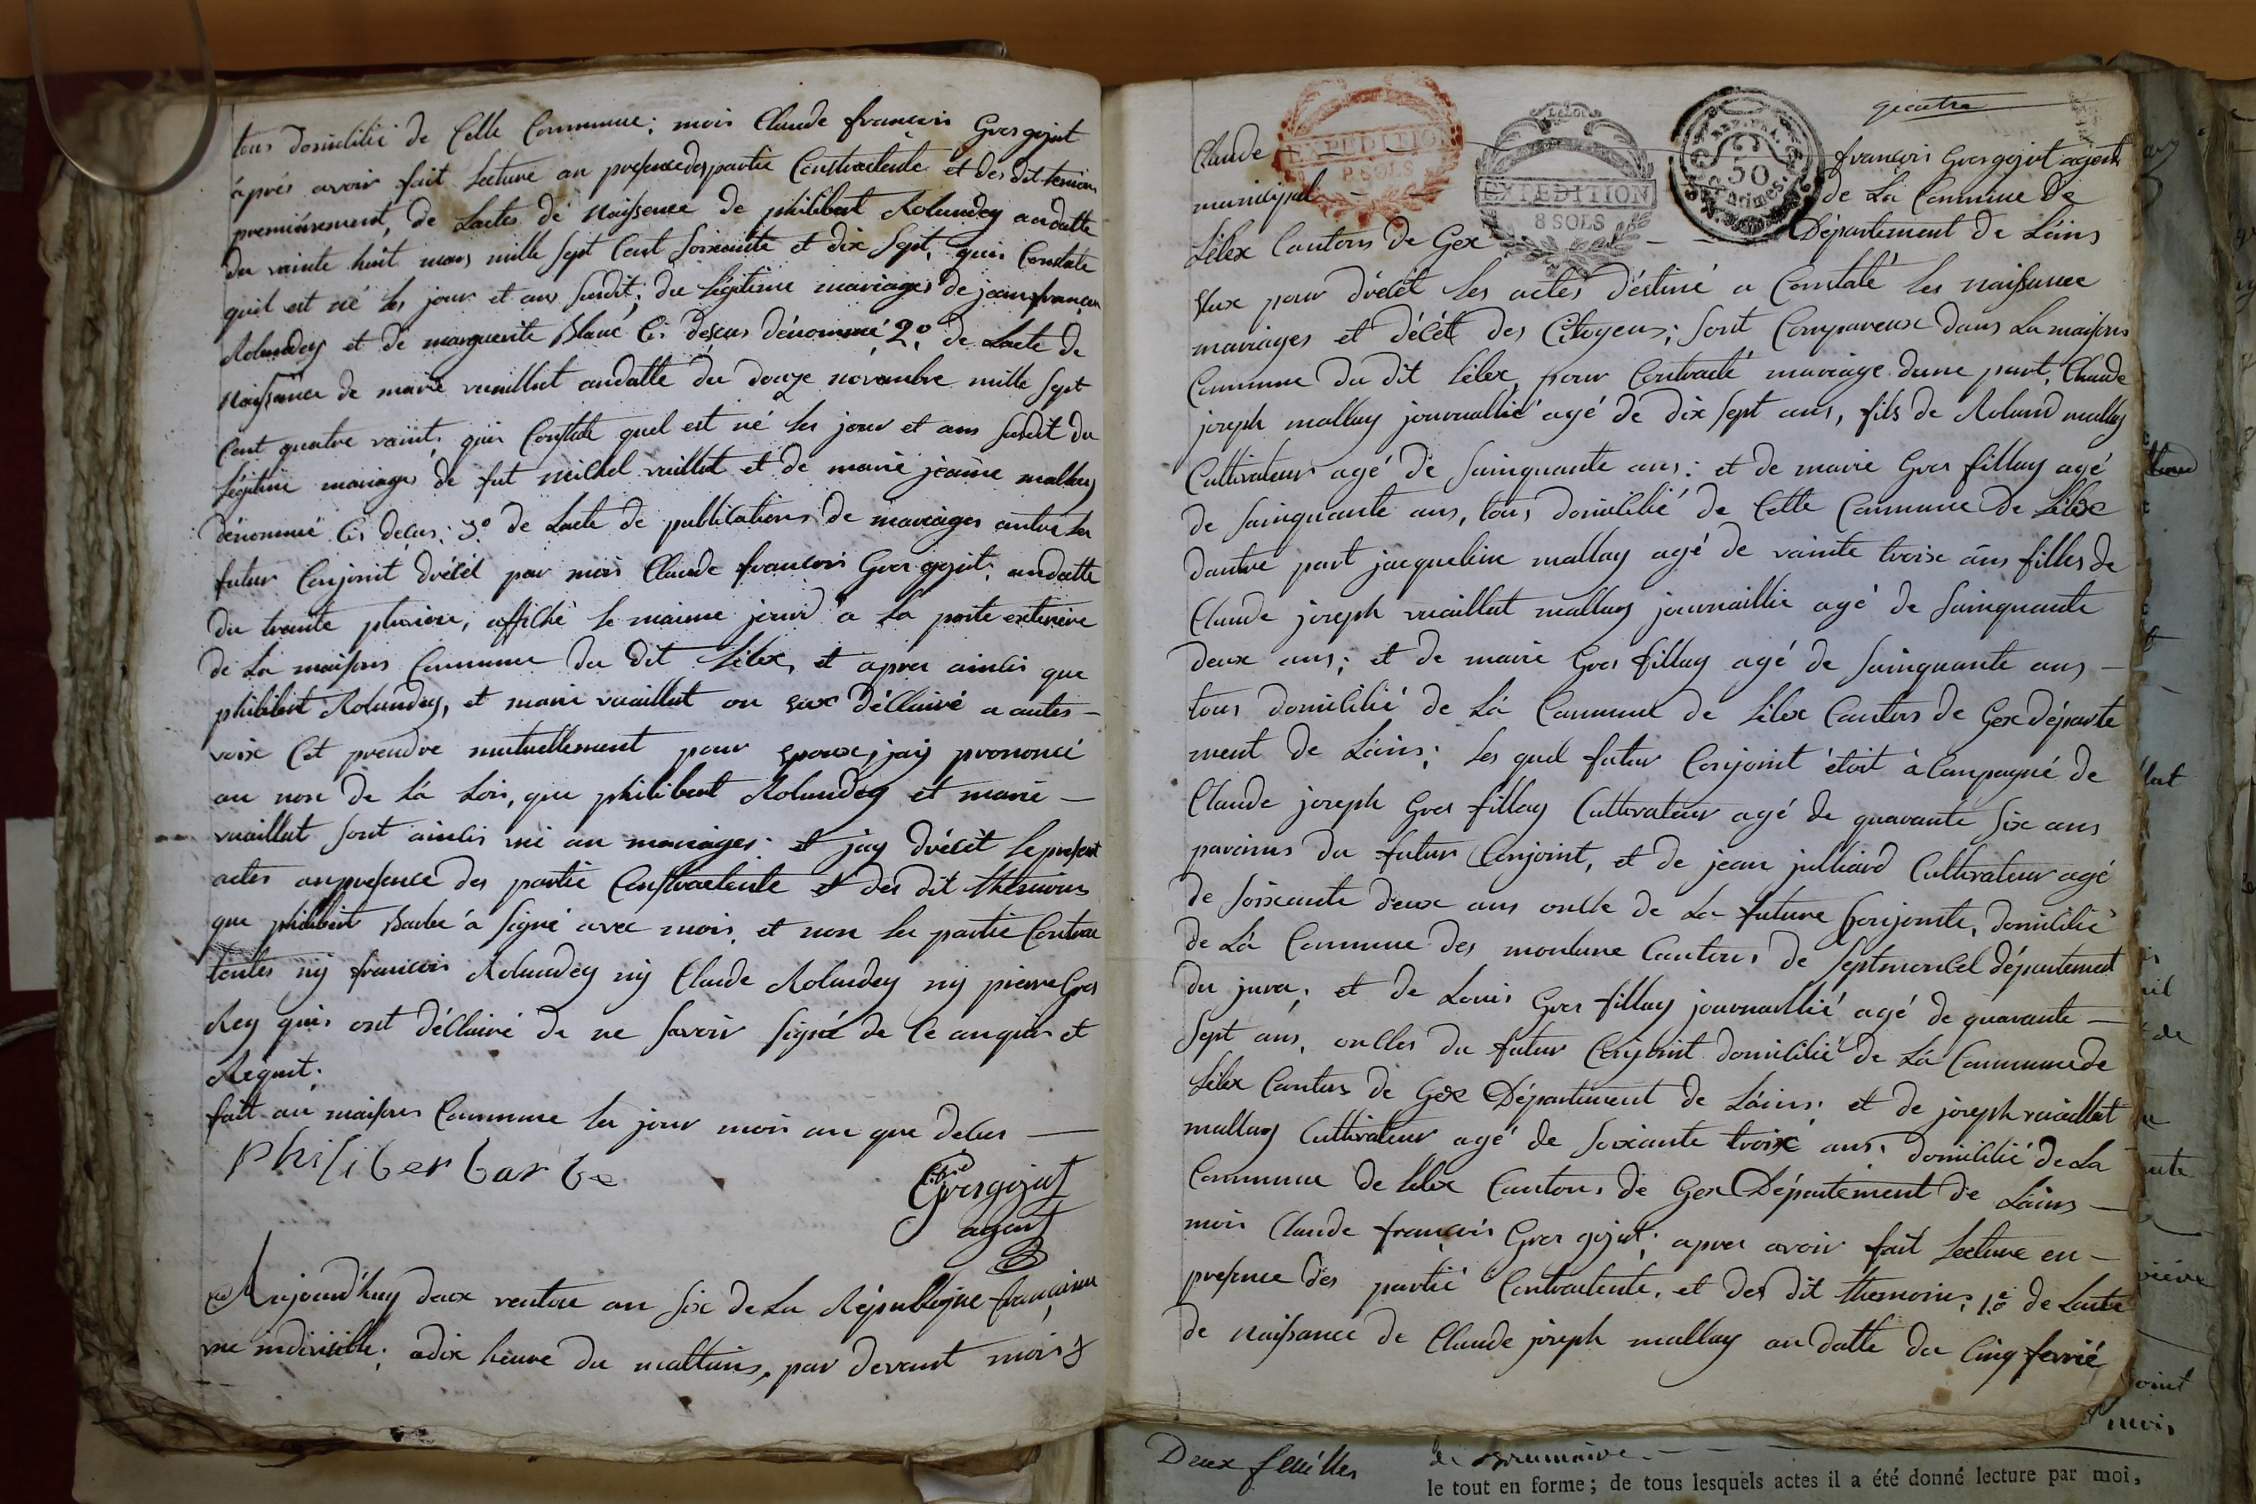 tous domicilié de Celle Commune; moi Claude françois Grosgojat
áprés avoir fait Lecture an presence des partie Constractente et des dit temoin
premiérement, de Lactes de Naissence de philibert Rolandey an datte
du vainte huit mars mille sept Cent soixante et dix sept, qui Constate
quil est né les jour et ans susdit; du légitime mariages de jean françois
Rolandey et de marguerite Blanc Cis desus dénommé, 2º de Lacte de
Naissance de marie vuaillat andatte du douze novembre mille sept
Cent quatre vaint, qui Constate quel est né les jour et ans susdit du
légitime mariages de fut michel vuillat et de marie jeanne mallay
dénommé Cis desus; 3º de Lacte de publications de mariages antre les
futur Conjoint drécét par moi Claude françois Gros gojat, andatte
du trante pluviose, affiché le maime jour a la porte exterieure
de la maisons Commune du dit Lélex, et aprer ainsis que
philibert Rolandey, et marie vuaillat on eux décllairé a autes —
voix Cet prendre mutuellement pour epoux, jaÿ prononcé
au non de La Loi, que philibert Rolandey et marie —
vuaillat sont ainsis uni an mariages. et jay drécét le present
actes anpresence des partie Constractente et des dit themoins
que philibert Barbe á signé avec mois, et non les partie Contrac
tentes nÿ francois Rolandey nÿ Claude Rolandey nÿ pierre Gros
Reÿ quis ont décllairé de ne savoir signé de Ce anquis et
Requit.
fait an maisons Commune les jour mois an que desus —
philiber barbe
Grosgojat
agent
Aujourd'huy deux ventose an six de La République française
une indivisible; a dix heure du mattins, par devant mois
quatre
Claude françois Gros gojat agent
EXPEDITION
8 SOLS
LA LOI
EXPEDITION
8 SOLS
REP. FRA.
50
Centimes.
municipal de La Commune De
Lélex Cantons de Gex — Département de Lains
Elux pour drécét les actes déstiné a Constaté les naissance
mariages et décét des Citoyens; sont Compareux dans La maisons
Commune du dit Lélex, pour Contracté mariage. dune part, Claude
joseph mallay journallié agé de dix sept ans, fils de Roland mallay
Cultivateur agé de sainquante ans; et de marie Gros fillay agé
de sainquante ans, tous domicilié de Celle Commune de Lélex
dautre part jacqueline mallay agé de vainte troix ans filles de
Claude joseph vuaillat mallay journaillié agé de sainquante
deux ans; et de marie Gros fillay agé de sainquante ans —
tous domicilié de Lá Commune de Lélex Cantons de Gex départe
ment de Láins; les quel futur Conjoint étoit áCompagné de
Claude joseph Gros fillay Cultivateur agé de quarante six ans
parains du futur Conjoint, et de jean julliard Cultivateur agé
de soixante deux ans oncle de La future Conjointe, domicilié
de Lá Commune des moulune Cantons de septmoncel département
du jura; et de Louis Gros fillay journallié agé de quarante —
sept ans, oncles du futur Conjoint domicilié de Lá Commune de
Lélex Cantons de Gex Département de Lains; et de joseph vuaillat
mallay Cultivateur agé de soixante troix ans, domicilié de La
Commune de Lélex Cantons de Gex Département de Lains —
mois Claude françois Gros gojat; aprer avoir fait Lecture en —
presence des partié Contractente, et des dit themoin; 1º de Lacte
de Naissance de Claude joseph mallay an datte du Cinq fevrié
Deux feuilles
de Brumaire. —
le tout en forme; de tous lesquels actes il a été donné lecture par moi,